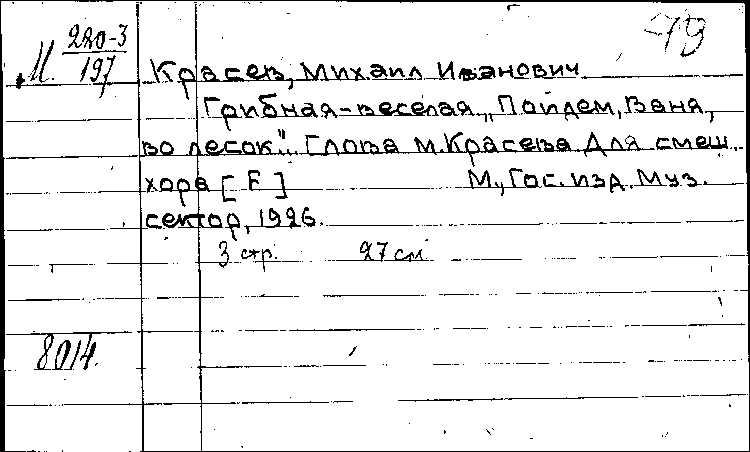 -79
М. 220-3/197
Красев, Михаил Иванович
Грибная-веселая „Пойдем, Ваня,
во лесок". Слова М. Красева. Для смеш.
хора [F] М., Гос. изд. Муз.
сектор, 1926.
3 стр. 27 см
8014.